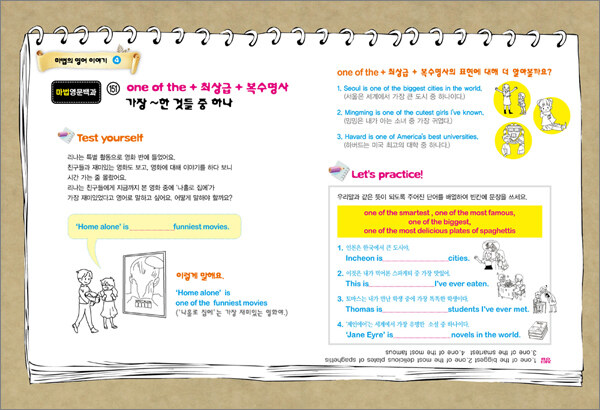 마법의 영어 이야기 4
마법영문백과 151 one of the + 최상급 + 복수명사
가장 ~한 것들 중 하나
Test yourself
리나는 특별 활동으로 영화 반에 들었어요.
친구들과 재미있는 영화도 보고, 영화에 대해 이야기를 하다 보니
시간 가는 줄 몰랐어요.
리나는 친구들에게 지금까지 본 영화 중에 '나홀로 집에'가
가장 재미있었다고 영어로 말하고 싶어요. 어떻게 말해야 할까요?
'Home alone' is funniest movies.
이렇게 말해요.
'Home alone' is
one of the funniest movies
('나홀로 집에'는 가장 재미있는 영화야.)
one of the + 최상급 + 복수명사의 표현에 대해 더 알아볼까요?
1. Seoul is one of the biggest cities in the world.
(서울은 세계에서 가장 큰 도시 중 하나이다.)
2. Mingming is one of the cutest girls I've known.
(밍밍은 내가 아는 소녀 중 가장 귀엽다.)
3. Havard is one of America's best universities.
(하버드는 미국 최고의 대학 중 하나다.)
Let's practice!
우리말과 같은 뜻이 되도록 주어진 단어를 배열하여 빈칸에 문장을 쓰세요.
one of the smartest , one of the most famous,
one of the biggest,
one of the most delicious plates of spaghettis
1. 인천은 한국에서 큰 도시야.
Incheon is cities.
2. 이것은 내가 먹어본 스파게티 중 가장 맛있어.
This is I've ever eaten.
3. 토마스는 내가 만난 학생 중에 가장 똑똑한 학생이다.
Thomas is students I've ever met.
4. '제인에어'는 세계에서 가장 유명한 소설 중 하나이다.
'Jane Eyre' is novels in the world.
정답 1.one of the biggest 2.one of the most delicious plates of spaghettis
3.one of the smartest 4.one of the most famous